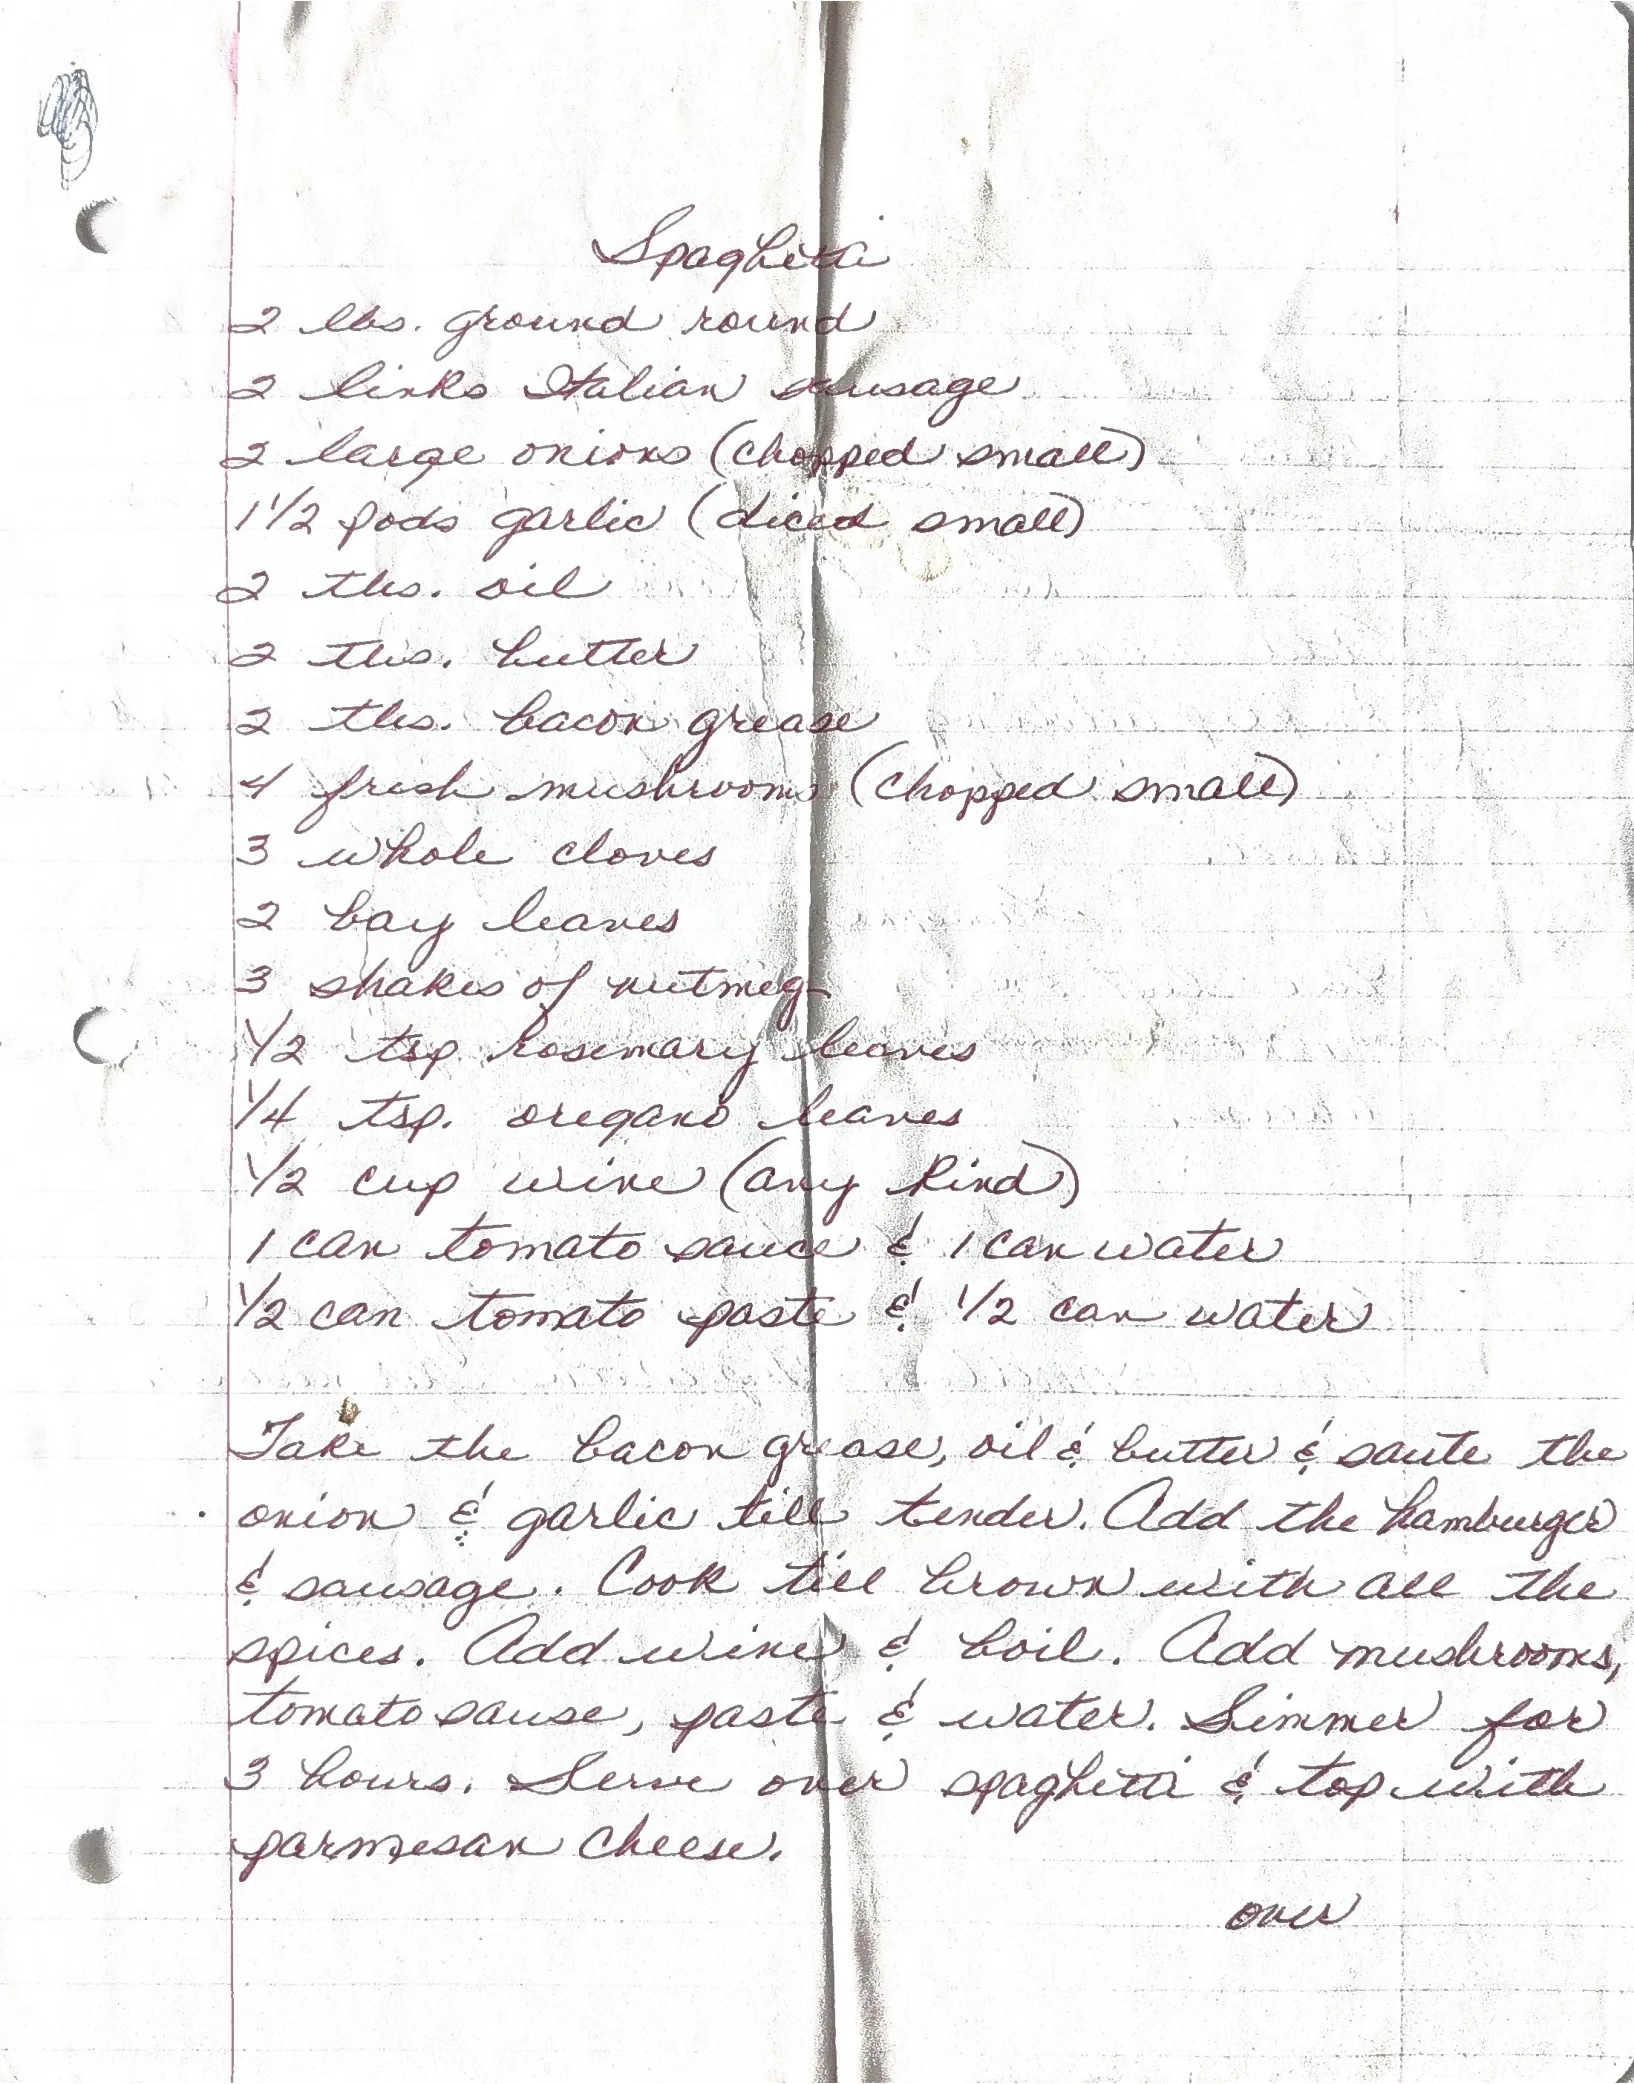 Spaghetti
2 lbs. ground round
2 links Italian sausage
2 large onions (chopped small)
1 1/2 pods garlic (diced small)
2 tbs. oil
2 tbs. butter
2 tbs. bacon grease
4 fresh mushrooms (chopped small)
3 whole cloves
2 bay leaves
3 shakes of nutmeg
1/2 tsp rosemary leaves
1/4 tsp. oregano leaves
1/2 cup wine (any kind)
1 can tomato sauce & 1 can water
1/2 can tomato paste & 1/2 can water
Take the bacon grease, oil & butter & saute the
onion & garlic till tender. Add the hamburger
& sausage. Cook till brown with all the
spices. Add wine & boil. Add mushrooms,
tomato sause, paste & water. Simmer for
3 hours. Serve over spaghetti & top with
parmesan cheese.
over